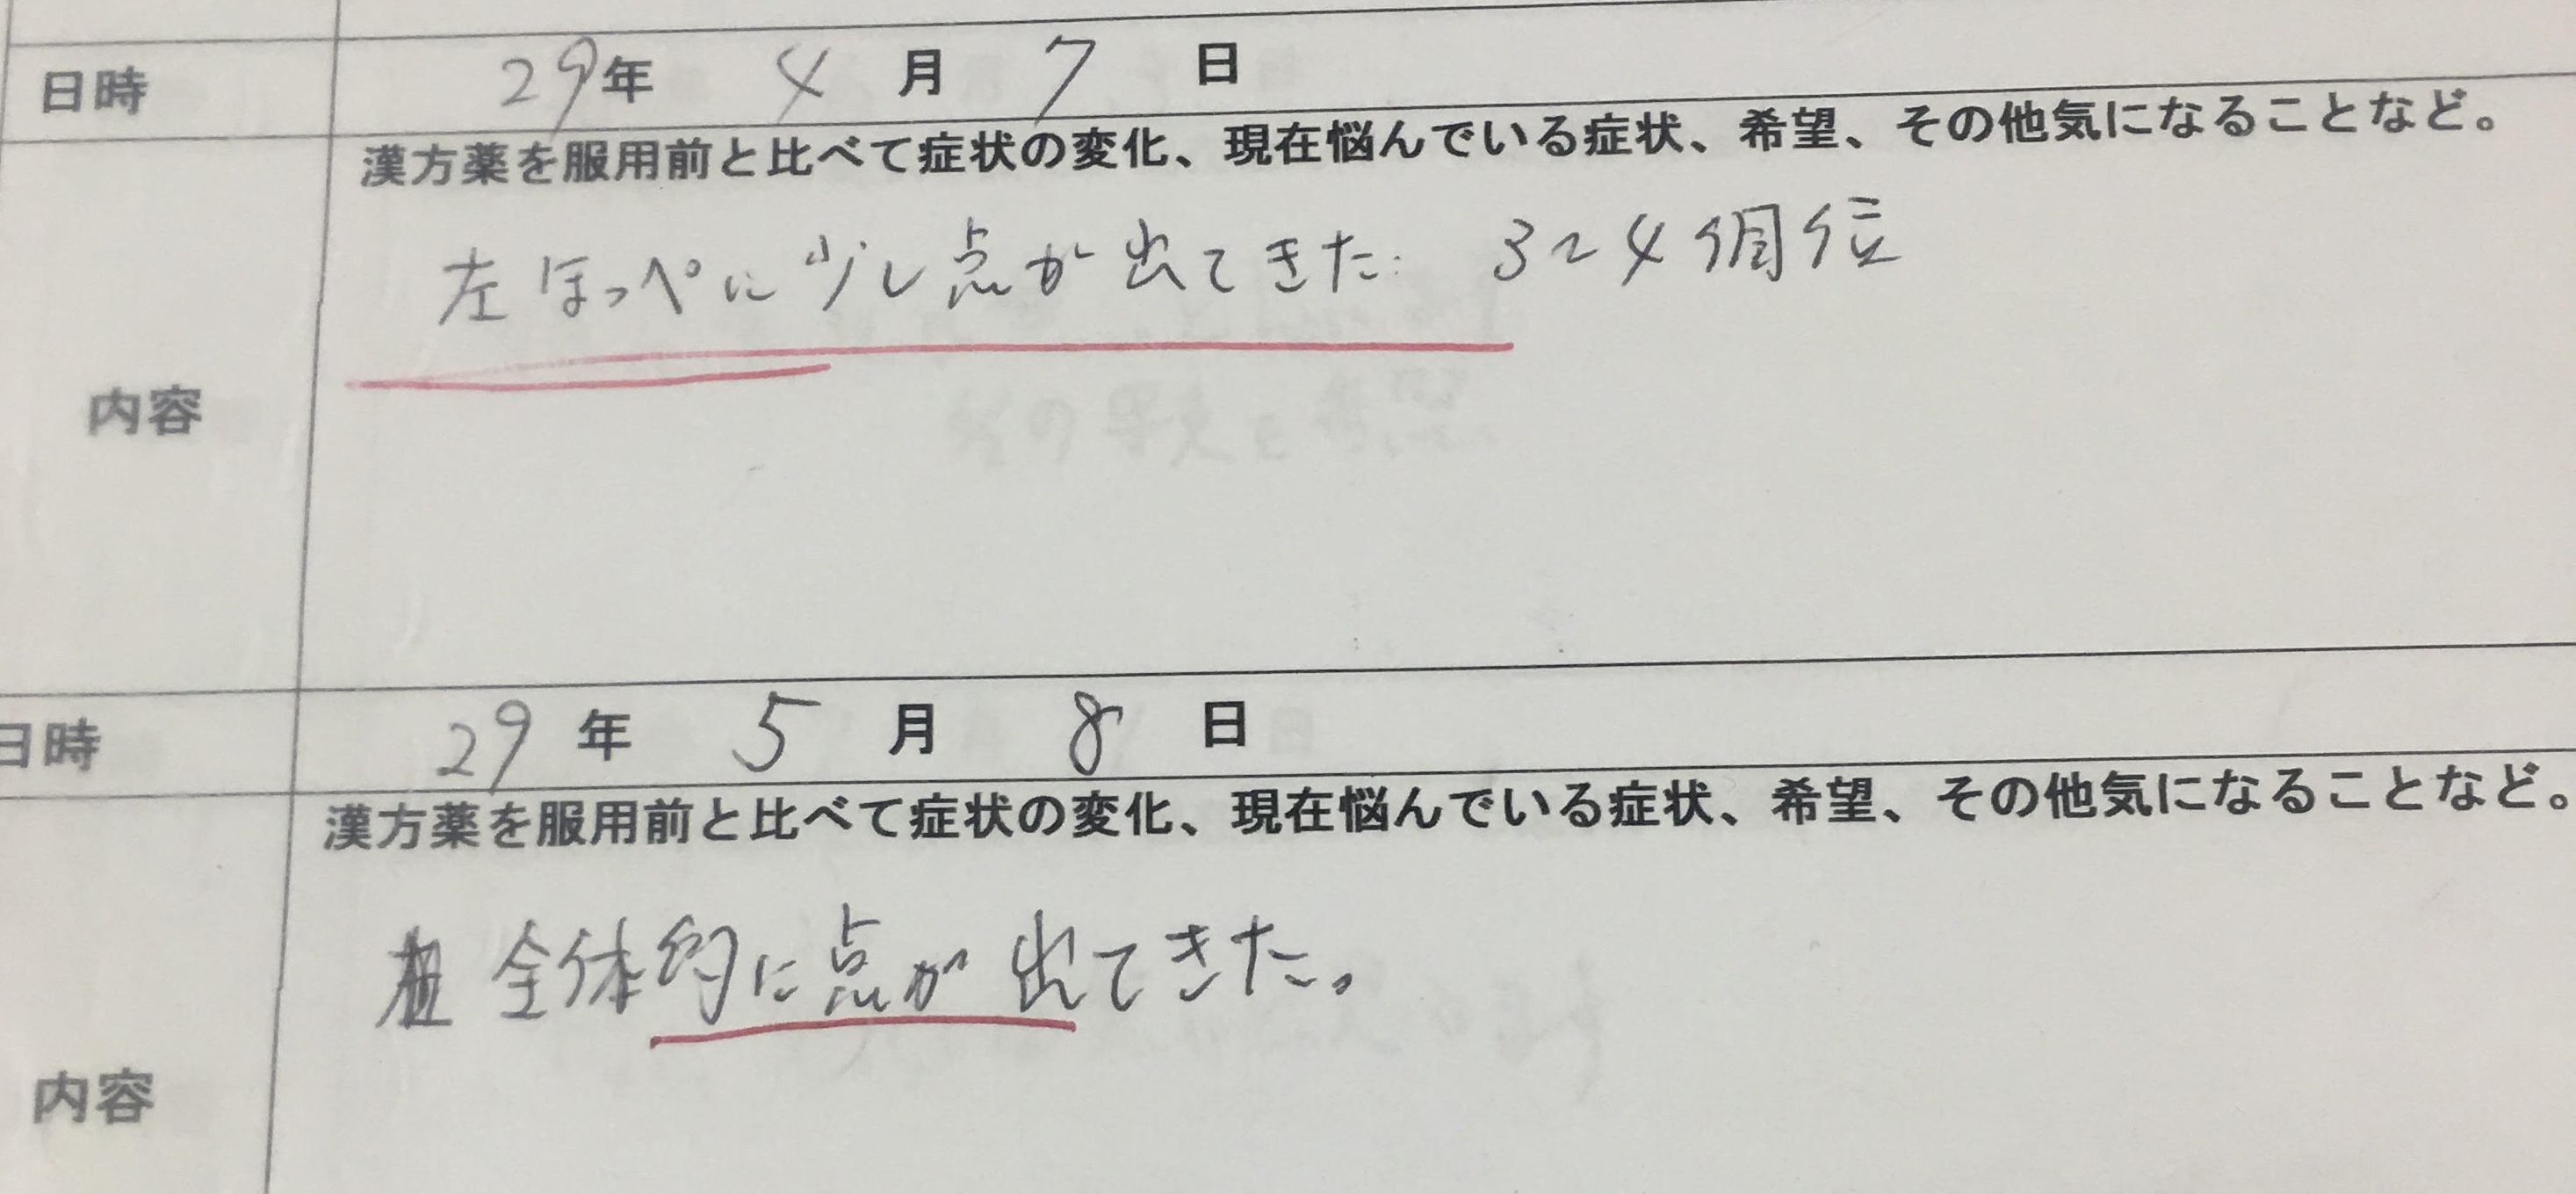 日時 29年 4月 7日
漢方薬を服用前と比べて症状の変化、現在悩んでいる症状、希望、その他気になることなど。
左ほっぺに少し点が出てきた 3～4個位
内容
日時 29年 5月 8日
漢方薬を服用前と比べて症状の変化、現在悩んでいる症状、希望、その他気になることなど。
全体的に点が出てきた。
内容